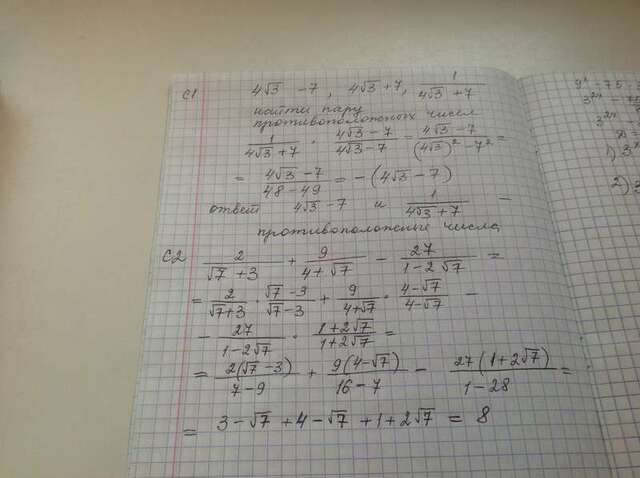 С1 4√3 -7 , 4√3 +7, 1/(4√3 +7)
найти пару
противоположных чисел
1/(4√3 +7) · (4√3 -7)/(4√3 -7) = (4√3 -7)/((4√3)² - 7²) =
= (4√3 -7)/(48-49) = -(4√3 -7)
ответ 4√3 -7 и 1/(4√3 +7) -
противоположные числа
С2 2/(√7 +3) + 9/(4+√7) - 27/(1-2√7) =
= 2/(√7+3) · (√7 -3)/(√7 -3) + 9/(4+√7) · (4-√7)/(4-√7) -
- 27/(1-2√7) · (1+2√7)/(1+2√7) =
= 2(√7 -3)/(7-9) + 9(4-√7)/(16-7) - 27(1+2√7)/(1-28) =
= 3-√7 +4-√7 +1+2√7 = 8
1)
2)